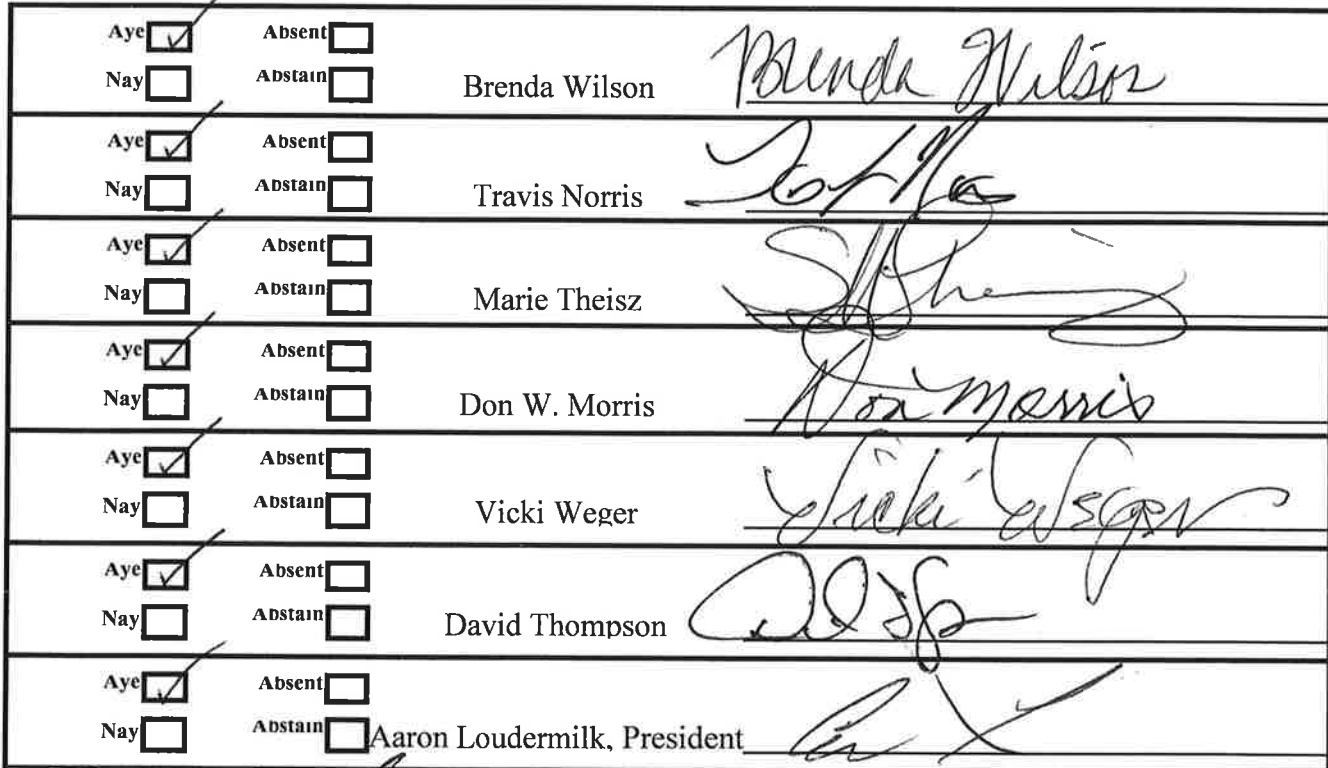 Aye Absent
Nay Abstain Brenda Wilson Brenda Wilson
Aye Absent
Nay Abstain Travis Norris
Aye Absent
Nay Abstain Marie Theisz
Aye Absent
Nay Abstain Don W. Morris Don Morris
Aye Absent
Nay Abstain Vicki Weger Vicki Weger
Aye Absent
Nay Abstain David Thompson
Aye Absent
Nay Abstain Aaron Loudermilk, President